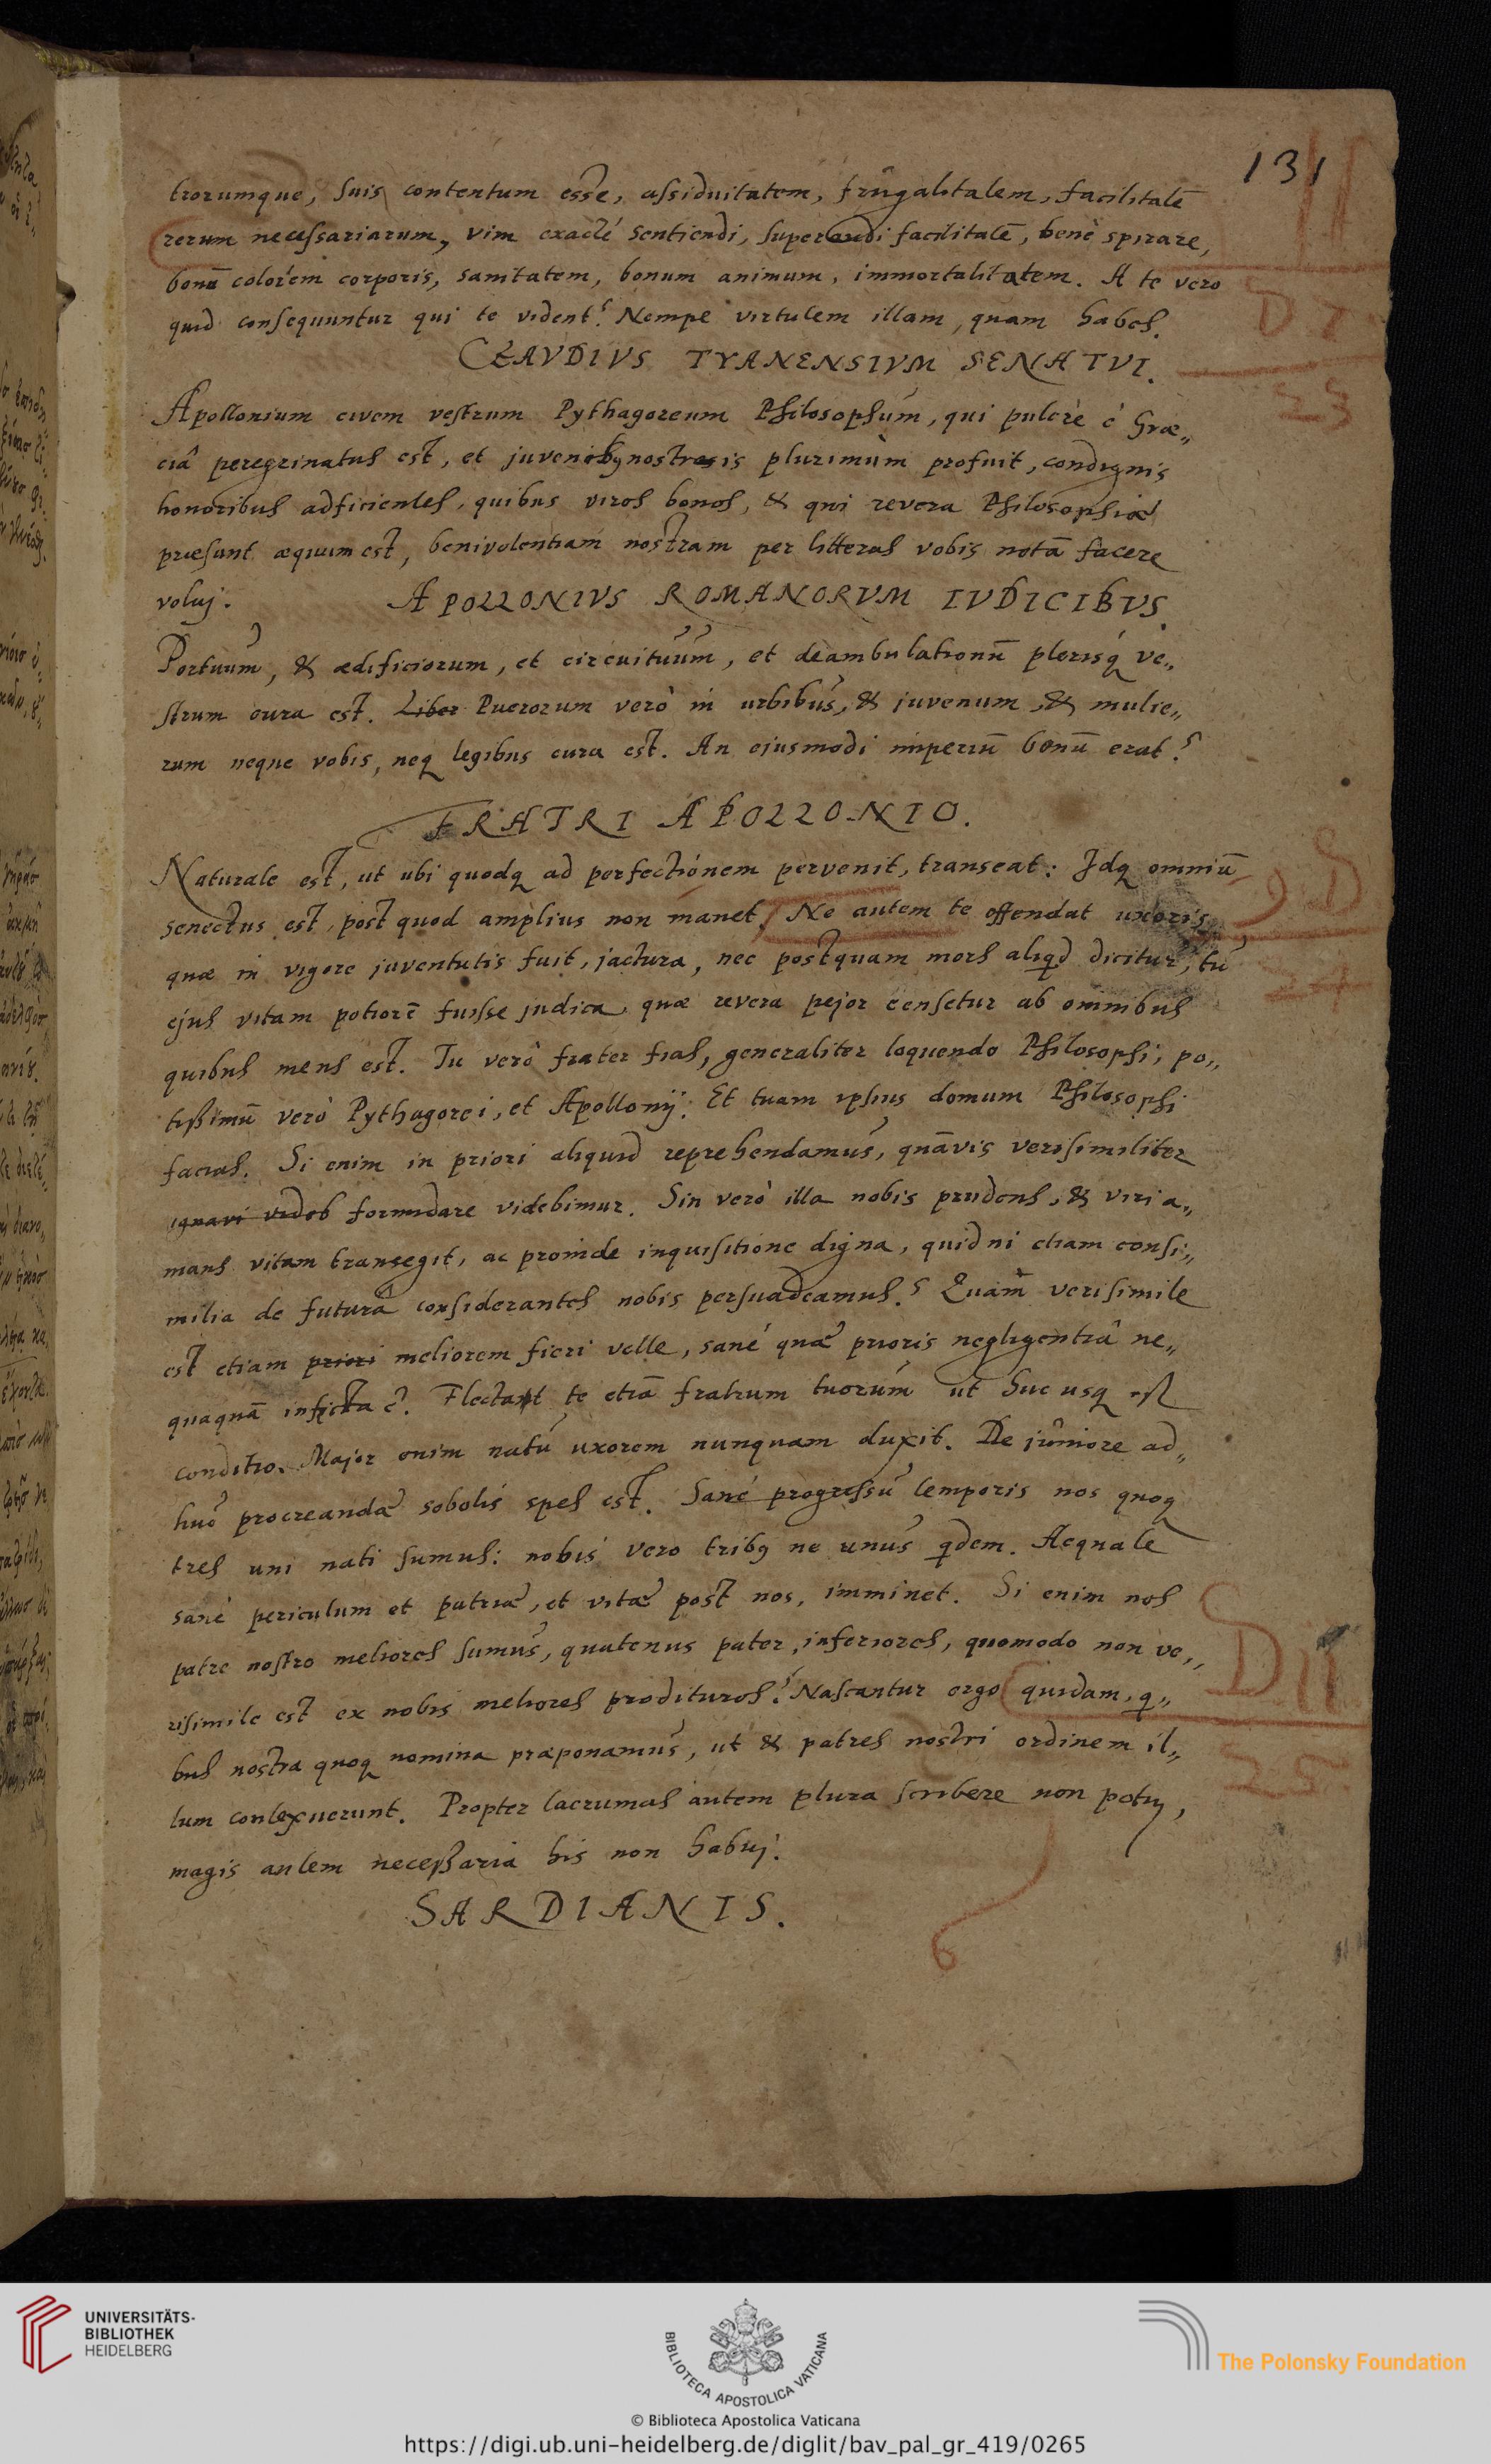 131
trorumque, suis contentum esse, assiduitatem, frugalitatem, facilitatē
rerum necessariarum, vim exacté sentiendi, superandi facilitatē, benè spirare,
bonū colorem corporis, sanitatem, bonum animum, immortalitatem. A te vero
quid consequuntur qui te vident? Nempe virtutem illam, quam habes.
CLAVDIVS TYANENSIVM SENATVI.
Apollonium civem vestrum Pythagoreum Philosophum, qui pulcrè è Græ„
ciâ peregrinatus est, et nostris plurimùm profuit, condignis
honoribus adficientes, quibus viros bonos, & qui revera Philosophiæ
præsunt æquum est, benivolentiam nostram per litteras vobis notā facere
voluj. APOLLONIVS ROMANORVM IVDICIBVS.
Portuum, & ædificiorum, et circuituum, et deambulationū plerisq́ ve„
strum cura est. Liber Puerorum verò in urbibus, & juvenum, & mulie„
rum neque vobis, neq legibus cura est. An ejusmodi imperiū bonū erat?
FRATRI APOLLONIO.
Naturale est, ut ubi quodq ad perfectionem pervenit, transeat: Idq omniū
senectus est, post quod amplius non manet. Ne autem te offendat uxoris
quæ in vigore juventutis fuit, jactura, nec postquam mors aliqd dicitur, tu
ejus vitam potiorē fuisse judica quæ revera pejor censetur ab omnibus
quibus mens est. Tu verò frater fias, generaliter loquendo Philosophi, po„
tißimū verò Pythagorei, et Apollonij. Et tuam ipsius domum Philosophi
facias. Si enim in priori aliquid reprehendamus, quāvis verisimiliter
ignavi videb formidare videbimur. Sin verò illa nobis prudens, & viri a„
mans vitam transegit, ac proinde inquisitione digna, quidni etiam consi„
milia de futurâ considerantes nobis persuadeamus? Quam verisimile
est etiam priori meliorem fieri velle, sané quæ prioris negligentiâ ne„
quaquā ē. te etiā fratrum tuorum ut huc usq est
conditio. Major enim natu uxorem nunquam duxit. De juniore ad„
huc procreandæ sobolis spes est. Sané progressu temporis nos quoq
tres uni nati sumus: nobis vero tribq ne unus qdem. Aequale
sané periculum et patriæ, et vitæ post nos, imminet. Si enim nos
patre nostro meliores sumus, quatenus pater, inferiores, quomodo non ve„
risimile est ex nobis meliores prodituros? Nascantur ergo quidam, q„
bus nostra quoq nomina præponamus, ut & patres nostri ordinem il„
lum contexuerunt. Propter lacrumas autem plura scribere non potuj,
magis autem neceßaria his non habuj.
SARDIANIS.
UNIVERSITÄTS-
BIBLIOTHEK
HEIDELBERG
BIBLIOTECA APOSTOLICA VATICANA
The Polonsky Foundation
© Biblioteca Apostolica Vaticana
https://digi.ub.uni-heidelberg.de/diglit/bav_pal_gr_419/0265